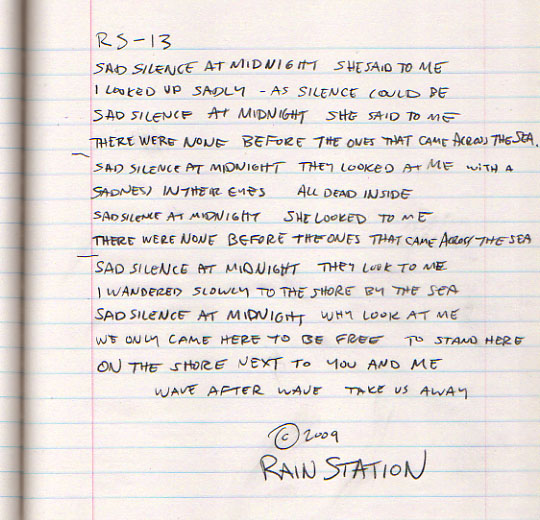 RS-13
SAD SILENCE AT MIDNIGHT SHE SAID TO ME
I LOOKED UP SADLY - AS SILENCE COULD BE
SAD SILENCE AT MIDNIGHT SHE SAID TO ME
THERE WERE NONE BEFORE THE ONES THAT CAME ACROSS THE SEA.
SAD SILENCE AT MIDNIGHT THEY LOOKED AT ME WITH A
SADNESS IN THEIR EYES ALL DEAD INSIDE
SAD SILENCE AT MIDNIGHT SHE LOOKED TO ME
THERE WERE NONE BEFORE THE ONES THAT CAME ACROSS THE SEA
SAD SILENCE AT MIDNIGHT THEY LOOK TO ME
I WANDERED SLOWLY TO THE SHORE BY THE SEA
SAD SILENCE AT MIDNIGHT WHY LOOK AT ME
WE ONLY CAME HERE TO BE FREE TO STAND HERE
ON THE SHORE NEXT TO YOU AND ME
WAVE AFTER WAVE TAKE US AWAY
© 2009
RAIN STATION